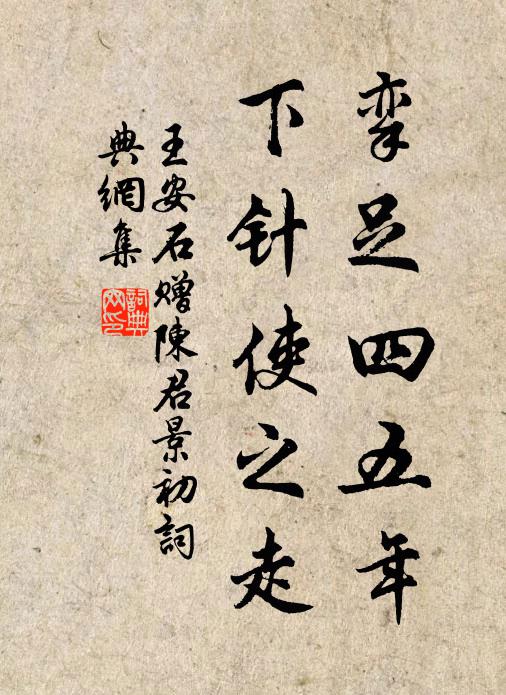 挛足四五年
下针使之走
王安石赠陳君景初詞
典網集
詞典
网印